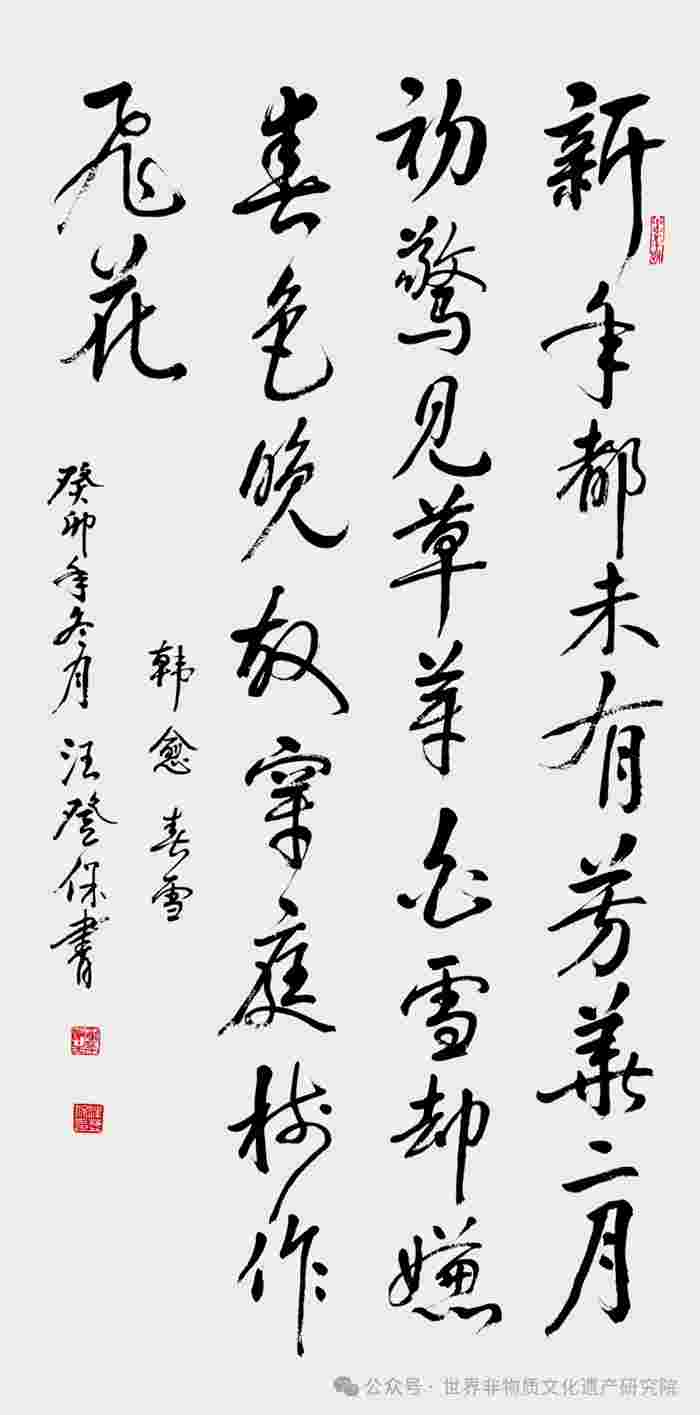 新年都未有芳華二月
初驚見草芽白雪却嫌
春色晚故穿庭樹作
飛花
韓愈春雪
癸卯年冬月汪登保書
公众号·世界非物质文化遗产研究院